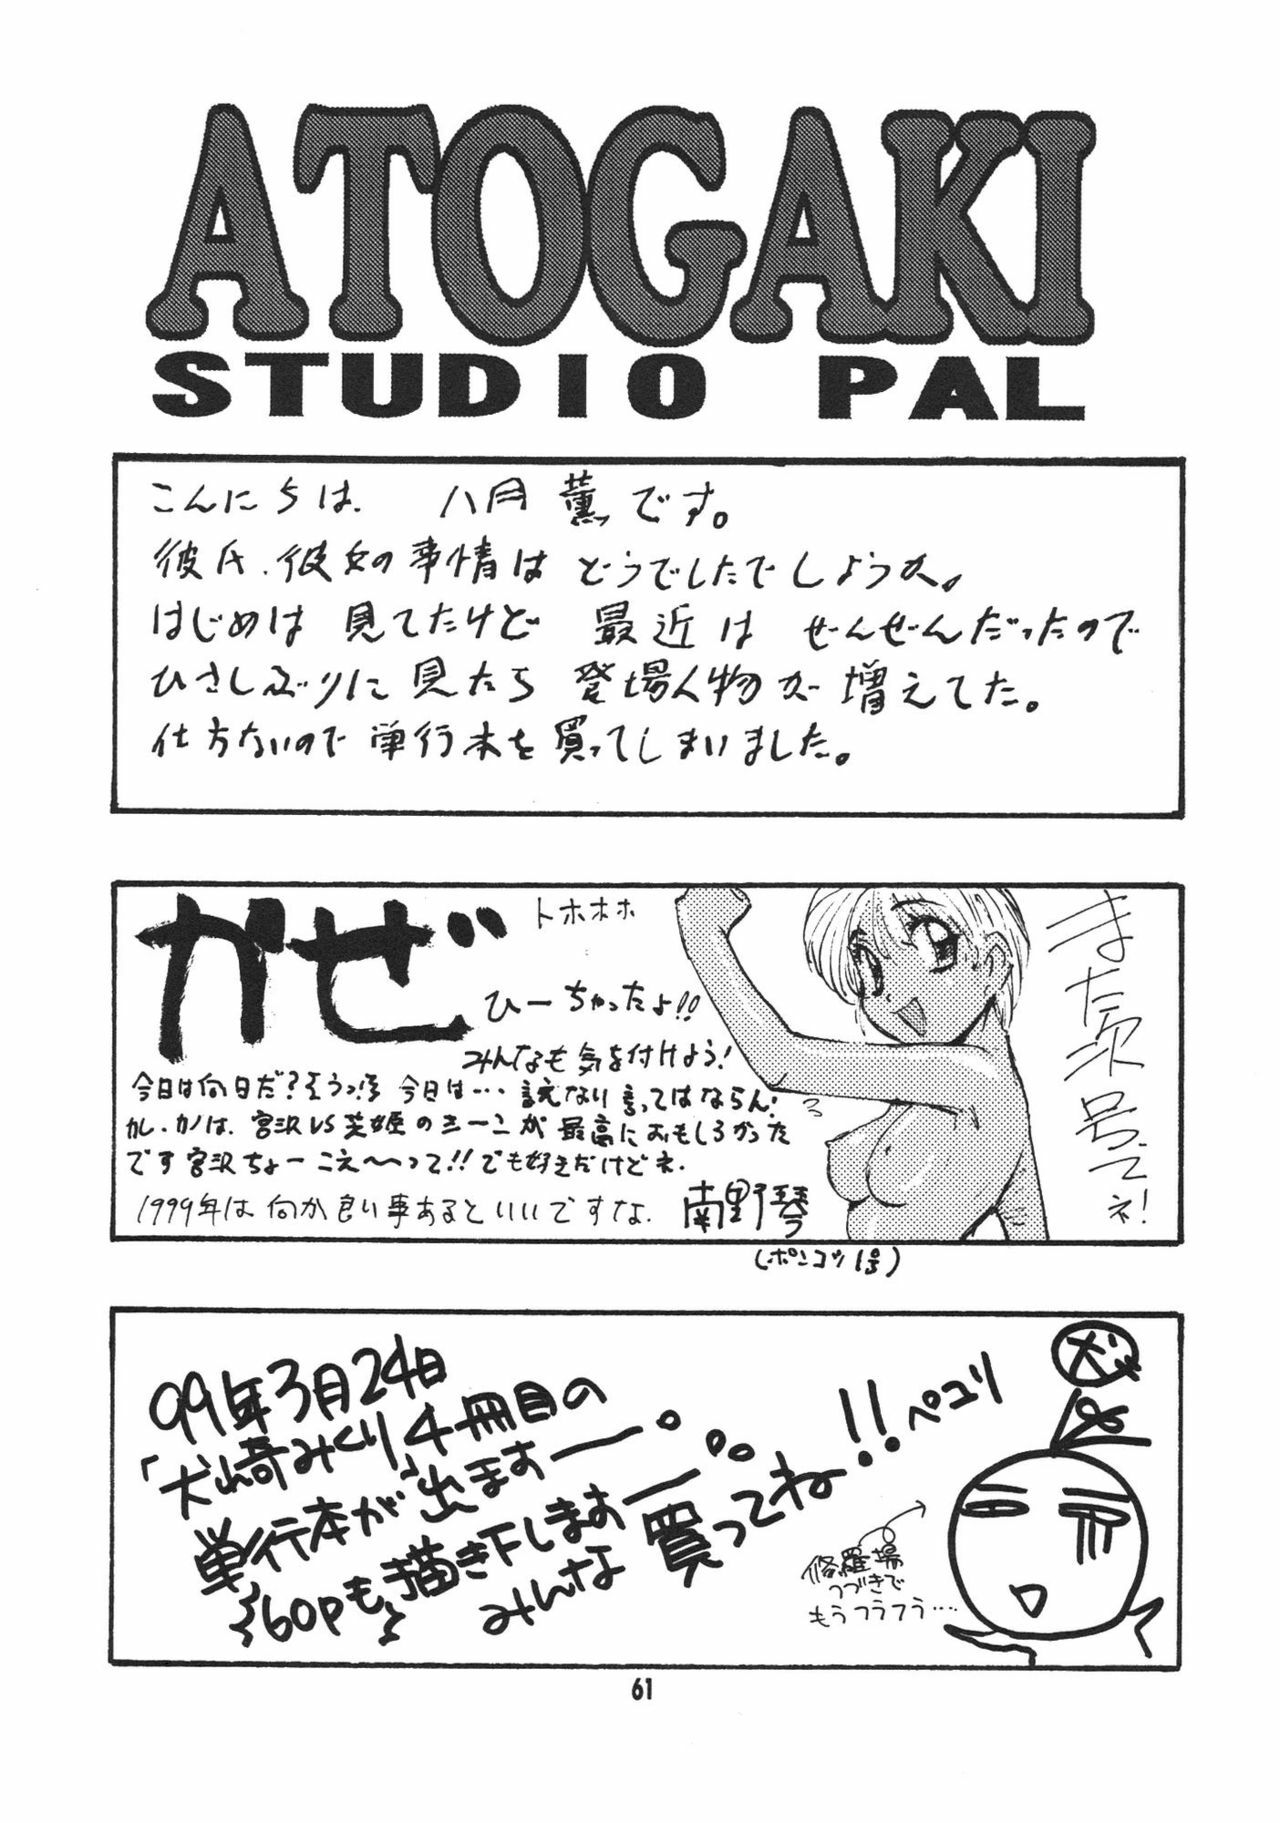 ATOGAKI
STUDIO PAL
こんにちは. 八月 薫です。
彼氏.彼女の事情は どうでしたでしょうか。
はじめは 見てたけど 最近は ぜんぜんだったので
ひさしぶりに 見たら 登場人物が増えてた。
仕方ないので 単行本を買ってしまいました。
かぜ
トホホホ
ひーちゃったよ!!
みんなも気を付けよう!
今日は何日だ?そうっ!今日は… 言えない言ってはならん!
カレ.カノは、宮沢VS芝姫のきーこが最高におもしろかった
です宮沢ちょーこえ〜〜って!!でも好きだけどネ.
1999年は何か良い事あるといいですな.
南野琴
(ポンコツ1号)
また次号でネ!
99年3月24日
「犬崎みくり4冊目の
単行本が出ますー
60Pも描き下しますー
みんな買ってね!!ペコリ
犬
修羅場
つづきで
もうフラフラ….
61